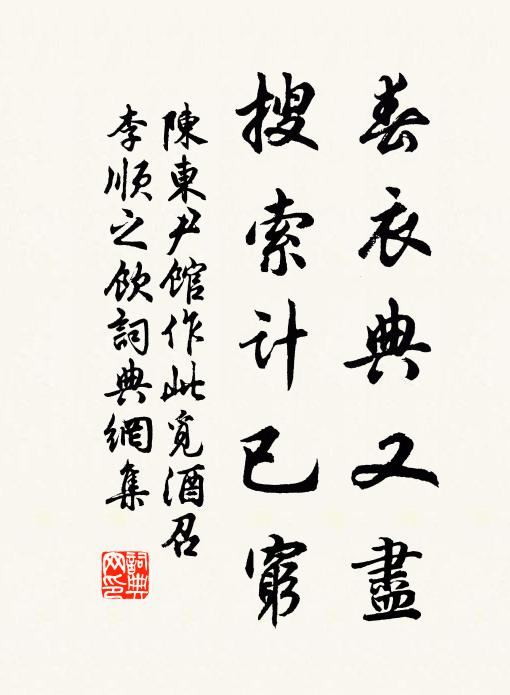 春衣典又盡
搜索计已窮
陳東尹館作此覓酒召
李顺之飲詞典網集
詞典
网印